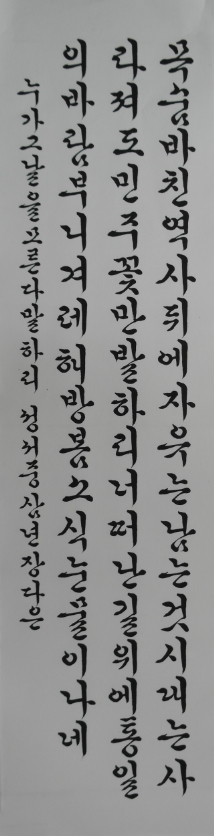 목숨바친역사뒤에자유는남는것시대는사
라져도민주꽃만발하리너떠난길위에통일
의바람부니겨레해방봄소식눈물이나네
누가그날을모른다말하리 중삼년장다은